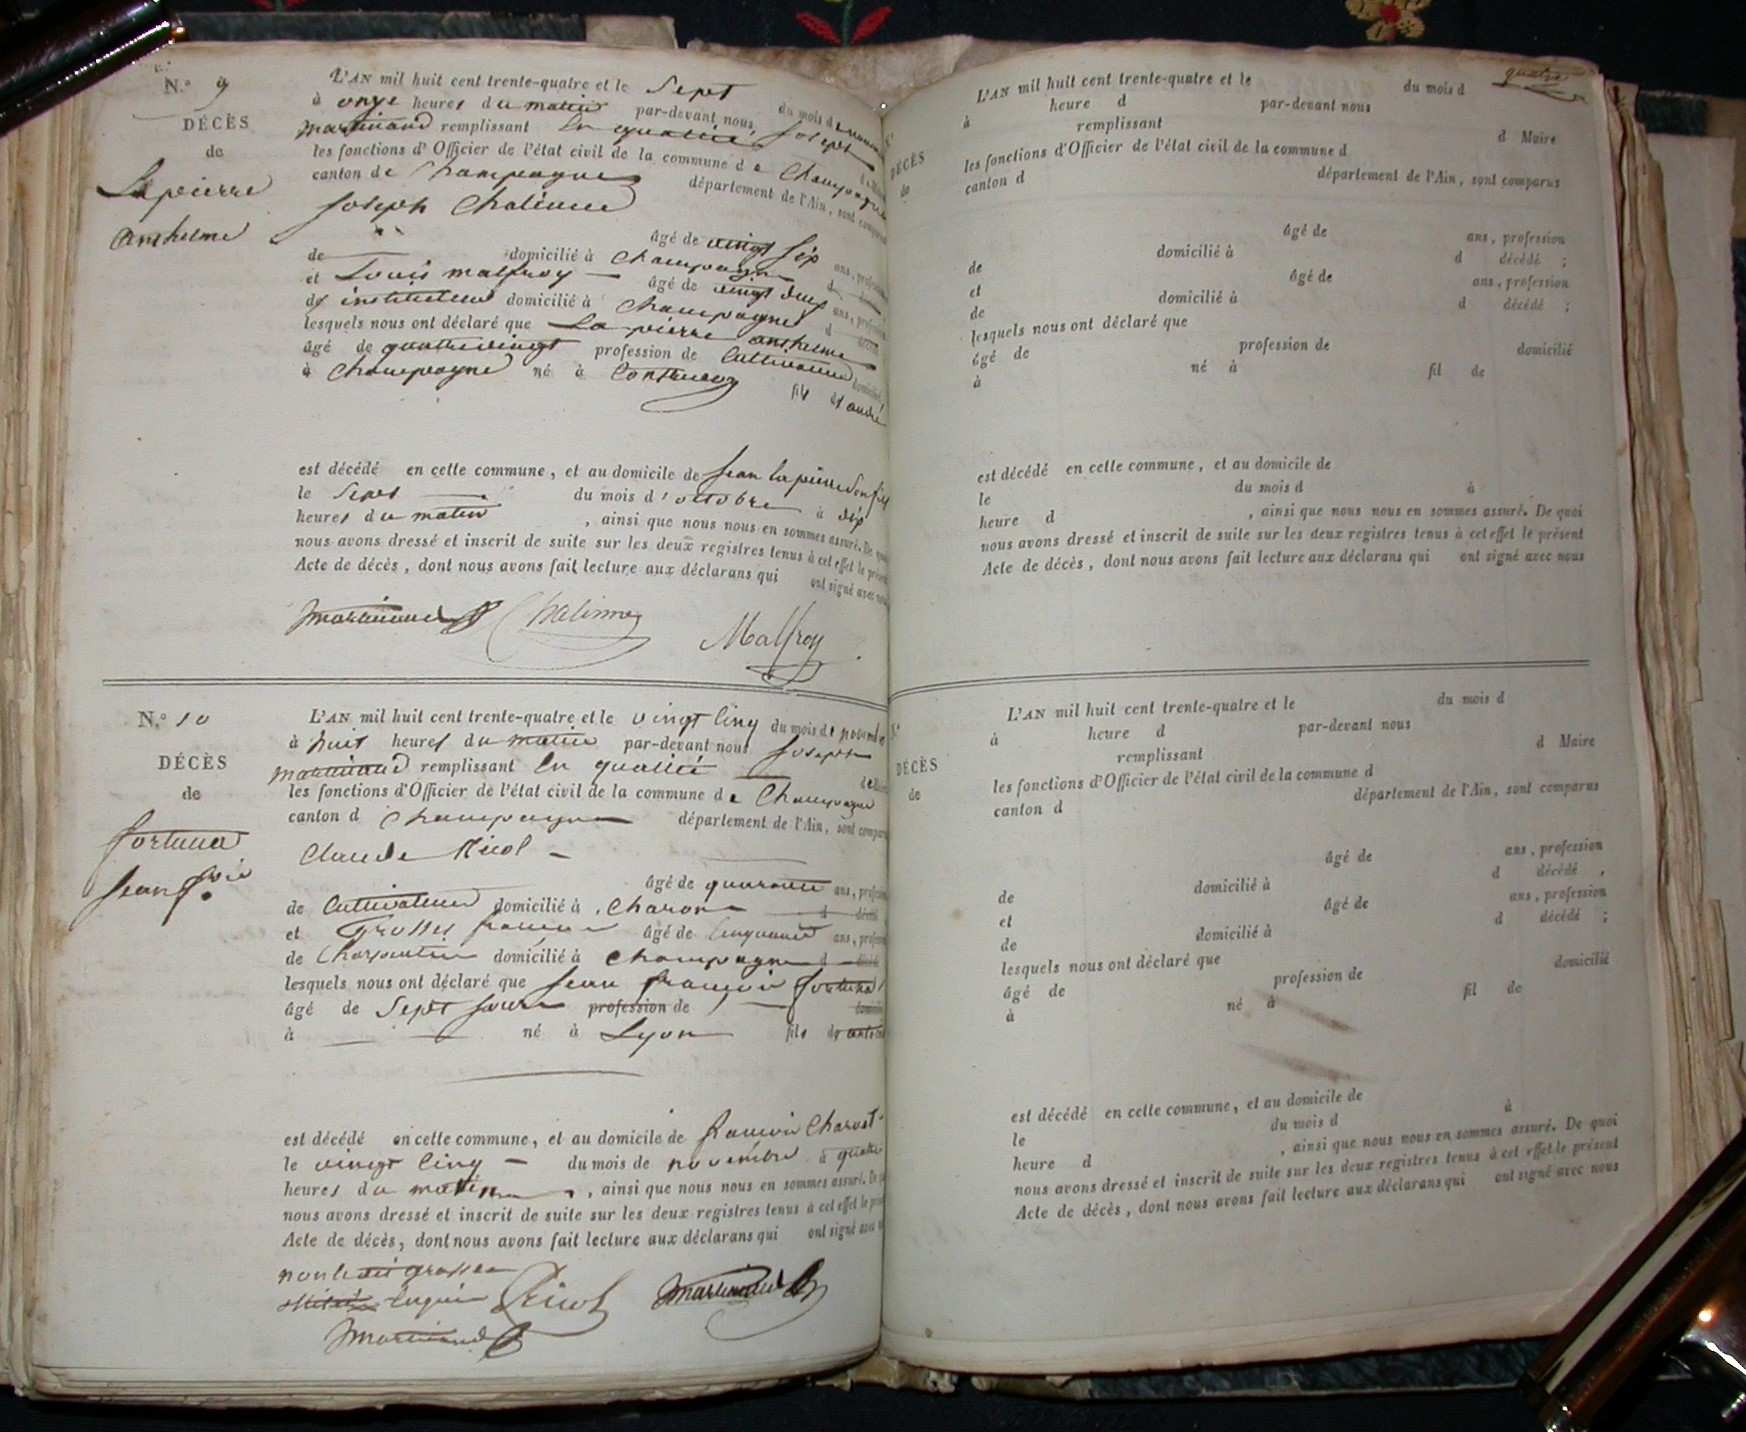 N.° 9
DÉCÈS
de
Lapierre
anthelme
L'AN mil huit cent trente-quatre et le Sept du mois d
à onze heures du matin par-devant nous Joseph
Martinand remplissant en qualité
les fonctions d'Officier de l'état civil de la commune de Champagne
canton de Champagne département de l'Ain, sont comparus
Joseph Chalinne
âgé de vingt six ans, profession
de domicilié à Champagne d
et Louis malfroy âgé de vingt deux ans, profession
de instituteur domicilié à Champagne d décédé
lesquels nous ont déclaré que La pierre anthelme
âgé de quatrevingt profession de Cultivateur domicilié
à Champagne né à fils d andré
est décédé en cette commune, et au domicile de Jean lapierre son fils
le Sept du mois d'octobre à dix
heures du matin , ainsi que nous nous en sommes assuré. De quoi
nous avons dressé et inscrit de suite sur les deux registres tenus à cet effet le présent
Acte de décès, dont nous avons fait lecture aux déclarans qui ont signé avec nous
Martinand Chalinne Malfroy
N.° 10
DÉCÈS
de
fortuna
Jean f.ois
L'AN mil huit cent trente-quatre et le vingt cinq du mois de novembre
à huit heures du matin par-devant nous Joseph
martinand remplissant en qualité
les fonctions d'Officier de l'état civil de la commune de Champagne
canton d Champagne département de l'Ain, sont comparus
Claude Nicol
âgé de quarante ans, profession
de Cultivateur domicilié à Charon d décédé
et Grosset françois âgé de cinquante ans, profession
de Charpentier domicilié à Champagne d décédé
lesquels nous ont déclaré que Jean françois fortuna
âgé de Sept jours profession de domicilié
à né à Lyon fils de
est décédé en cette commune, et au domicile de françois Charvet
le vingt cinq du mois de novembre à quatre
heures du matin , ainsi que nous nous en sommes assuré. De quoi
nous avons dressé et inscrit de suite sur les deux registres tenus à cet effet le présent
Acte de décès, dont nous avons fait lecture aux déclarans qui ont signé avec nous
non ledit grosset
enquis Nicol Martinand
Martinand
quatre
N.°
DÉCÈS
de
L'AN mil huit cent trente-quatre et le du mois d
à heure d par-devant nous
remplissant d Maire
les fonctions d'Officier de l'état civil de la commune d
canton d département de l'Ain, sont comparus
âgé de ans, profession
de domicilié à d décédé ;
et âgé de ans, profession
de domicilié à d décédé ;
lesquels nous ont déclaré que
âgé de profession de domicilié
à né à fil de
est décédé en cette commune, et au domicile de
le du mois d à
heure d , ainsi que nous nous en sommes assuré. De quoi
nous avons dressé et inscrit de suite sur les deux registres tenus à cet effet le présent
Acte de décès, dont nous avons fait lecture aux déclarans qui ont signé avec nous
N.°
DÉCÈS
de
L'AN mil huit cent trente-quatre et le du mois d
à heure d par-devant nous
remplissant d Maire
les fonctions d'Officier de l'état civil de la commune d
canton d département de l'Ain, sont comparus
âgé de ans, profession
de domicilié à d décédé ,
et âgé de ans, profession
de domicilié à d décédé ;
lesquels nous ont déclaré que
âgé de profession de domicilié
à né à fil de
est décédé en cette commune, et au domicile de
le du mois d à
heure d , ainsi que nous nous en sommes assuré. De quoi
nous avons dressé et inscrit de suite sur les deux registres tenus à cet effet le présent
Acte de décès, dont nous avons fait lecture aux déclarans qui ont signé avec nous